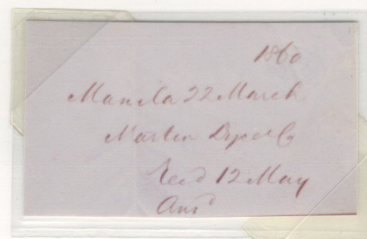 1860
Manila 22 March
Martin Dyce & Co
Recd 12 May
Ansd